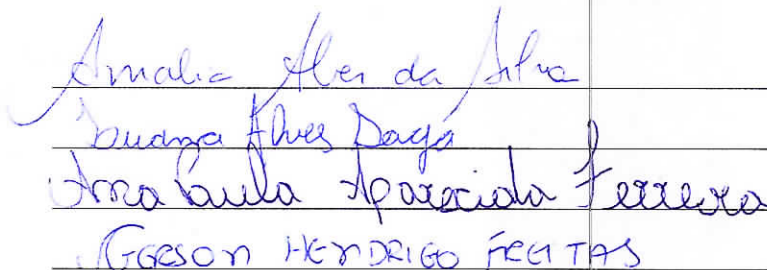 Amalia Alves da Silva
Alves
Ana Paula Aparecida Ferreira
Gerson HENDRIGO FREITAS